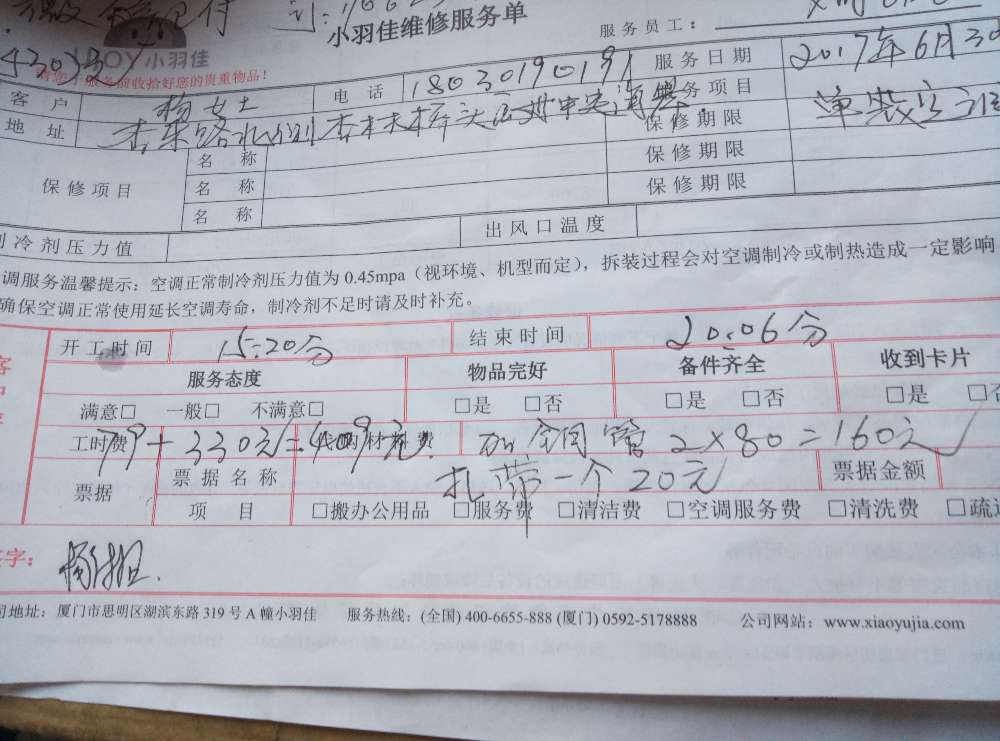 小羽佳维修服务单
服务员工：
JOY 小羽佳
请您于服务前收拾好您的贵重物品！
客户 杨女士 电话 18030190191 服务日期 2017年6月30
地址 服务项目 单装空调
保修期限
保修项目 名称 保修期限
名称 保修期限
名称
制冷剂压力值 出风口温度
调服务温馨提示：空调正常制冷剂压力值为 0.45mpa（视环境、机型而定），拆装过程会对空调制冷或制热造成一定影响
确保空调正常使用延长空调寿命，制冷剂不足时请及时补充。
开工时间 15:20分 结束时间 20:06分
服务态度 物品完好 备件齐全 收到卡片
满意□ 一般□ 不满意□ □是 □否 □是 □否 □是 □否
工时费 79+330元=409元 材料费 加全铜管 2×80=160元
票据 票据名称 扎带一个20元 票据金额
项目 □搬办公用品 □服务费 □清洁费 □空调服务费 □清洗费 □疏通
签字：
司地址：厦门市思明区湖滨东路 319 号 A 幢小羽佳 服务热线：(全国) 400-6655-888 (厦门) 0592-5178888 公司网站：www.xiaoyujia.com